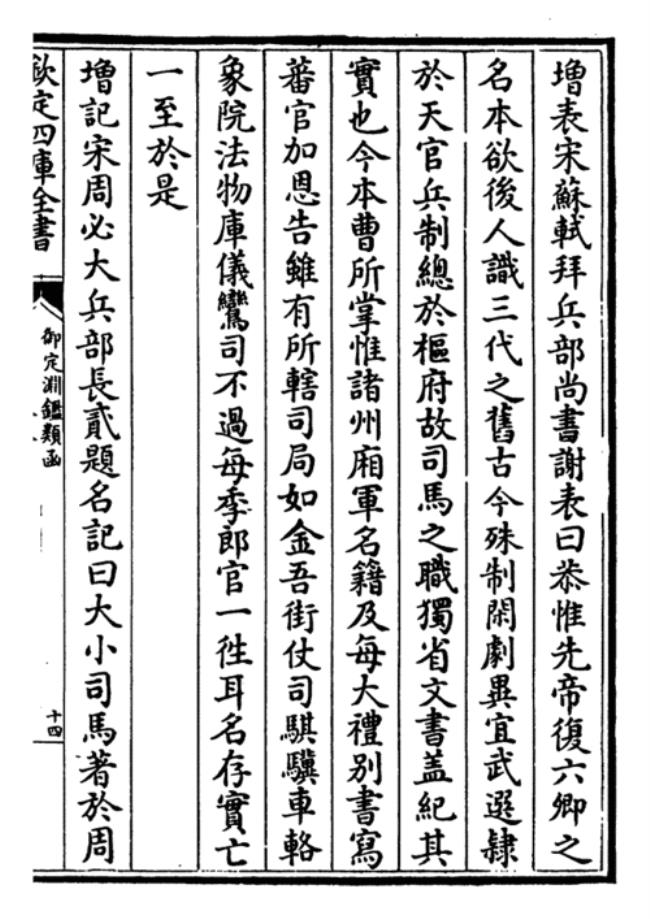 增表宋蘇軾拜兵部尚書謝表曰恭惟先帝復六卿之
名本欲後人識三代之舊古今殊制閑劇異宜武選隸
於天官兵制總於樞府故司馬之職獨省文書盖紀其
實也今本曹所掌惟諸州廂軍名籍及每大禮别書寫
蕃官加恩告雖有所轄司局如金吾街仗司騏驥車輅
象院法物庫儀鸞司不過每季郎官一徃耳名存實亡
一至於是
增記宋周必大兵部長貳題名記曰大小司馬著於周
欽定四庫全書
御定淵鑑類函
十四